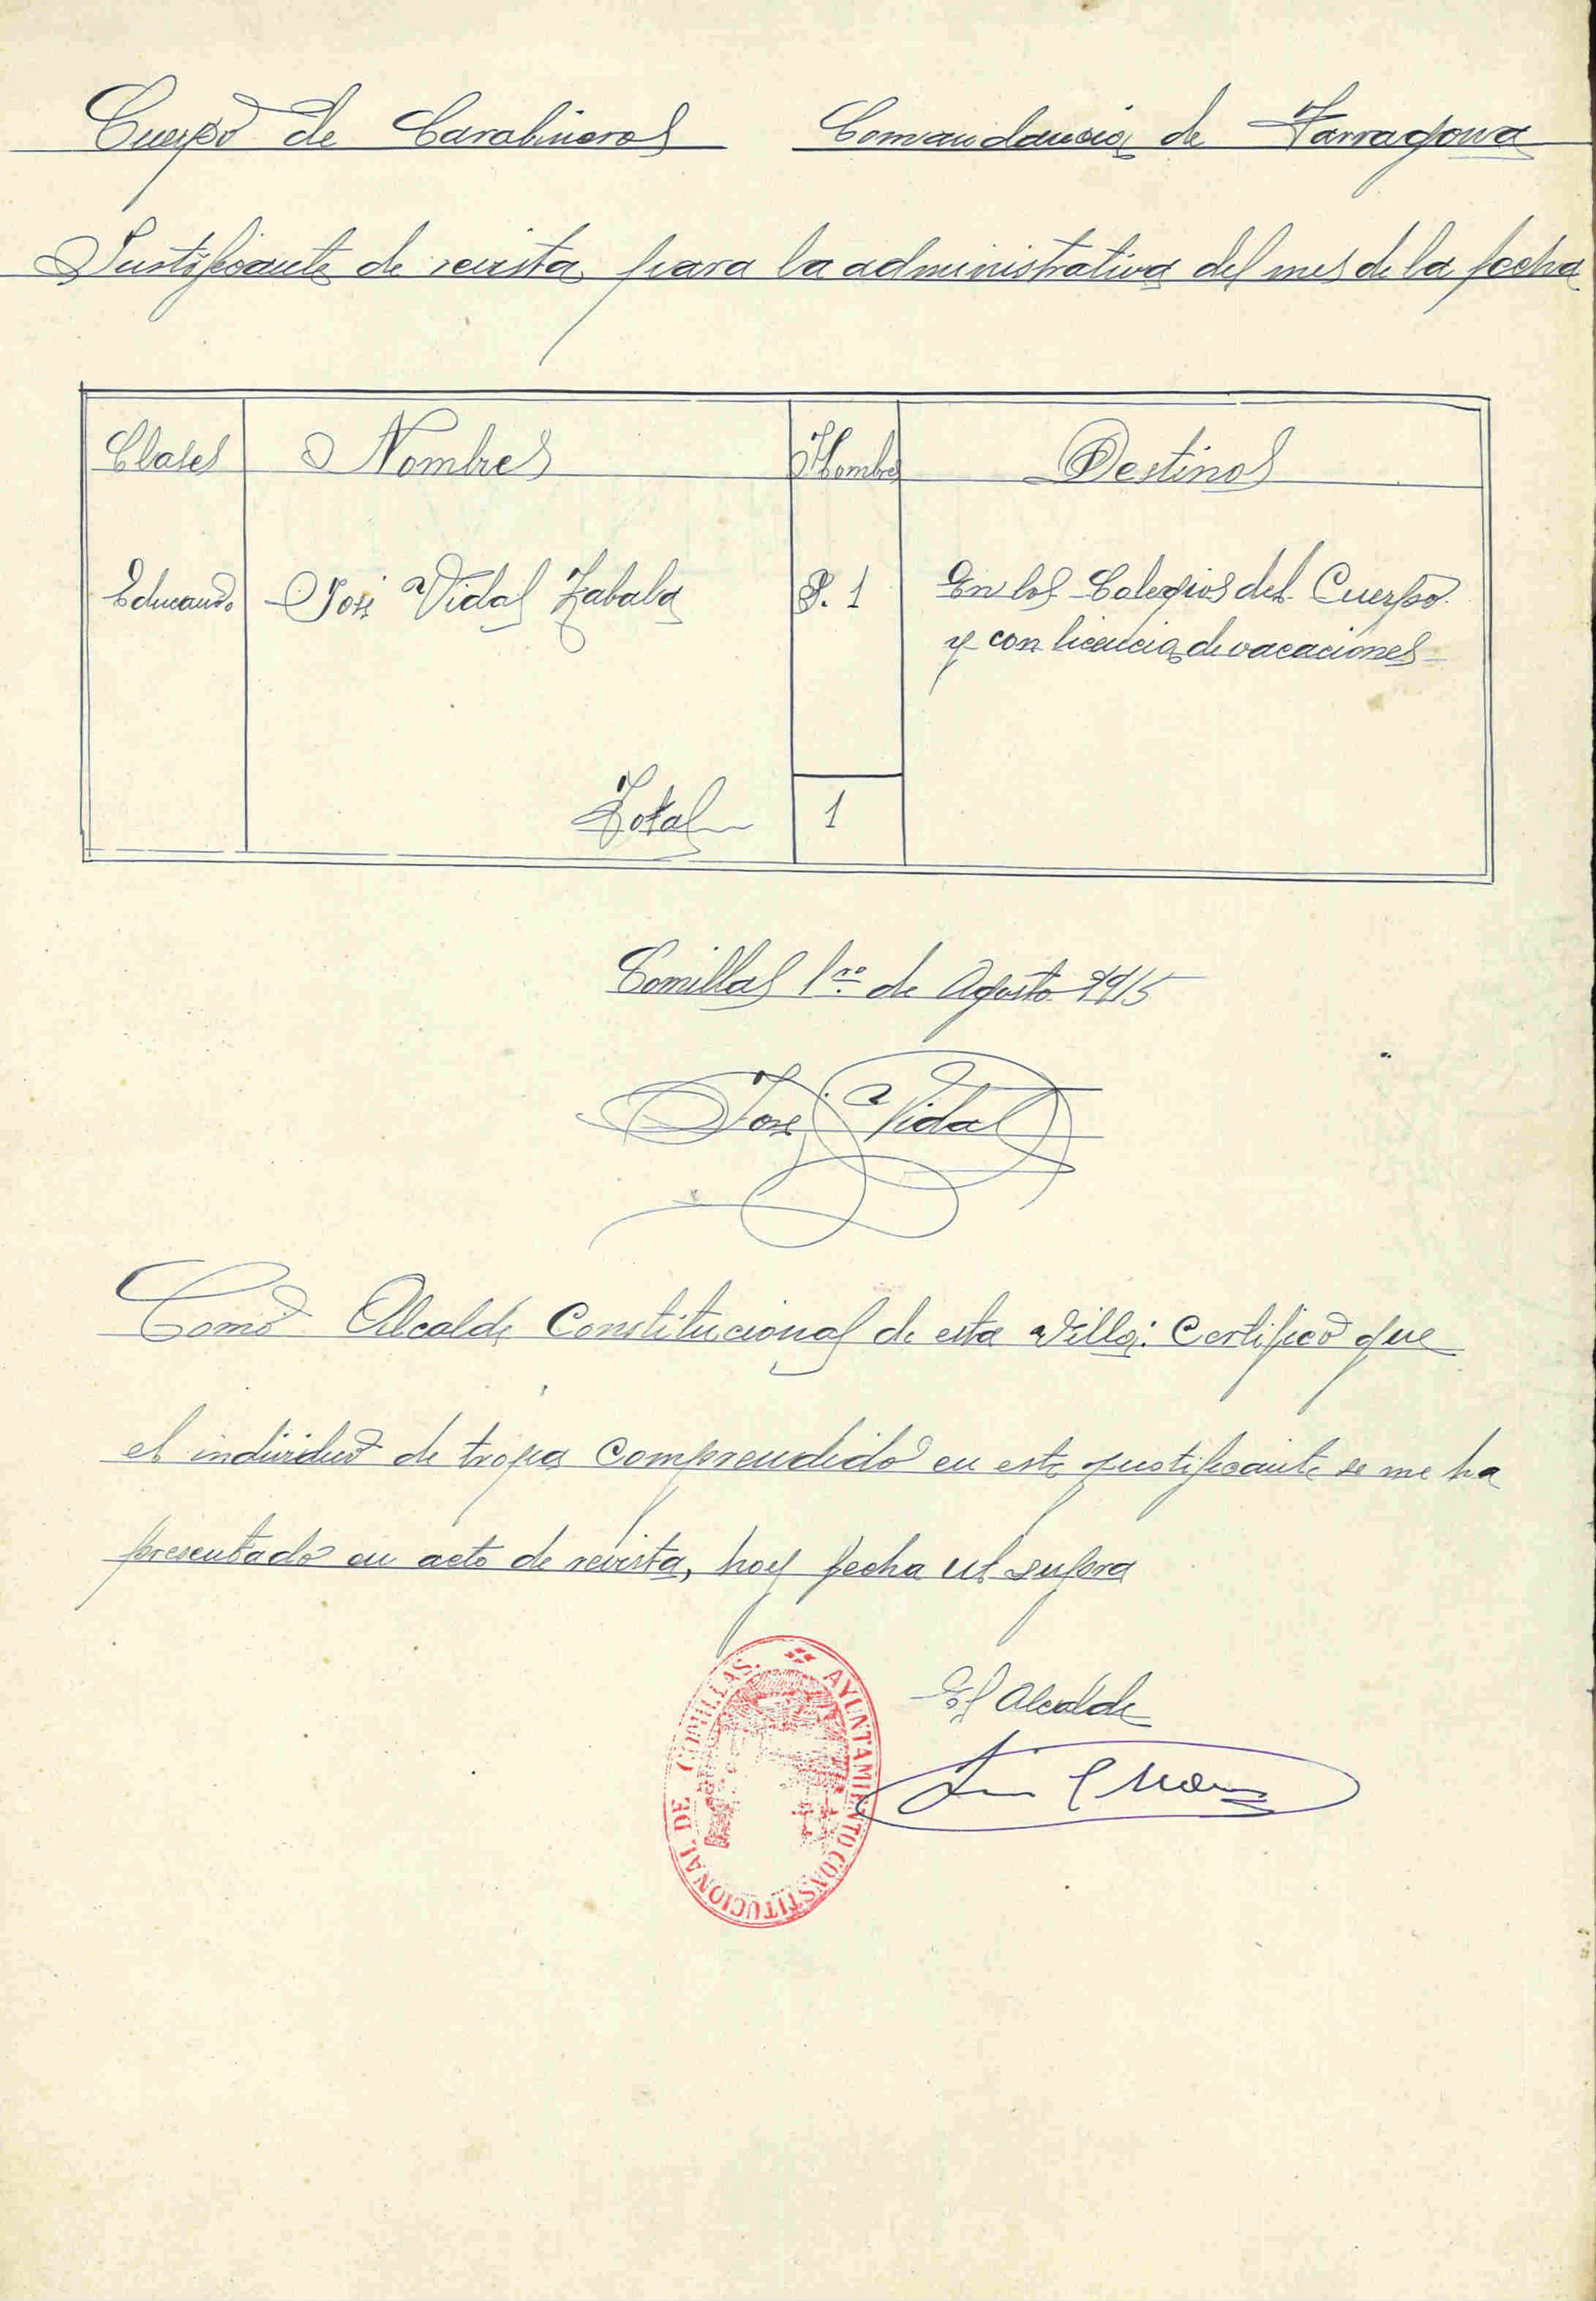 Cuerpo de Carabineros Comandancia de Tarragona
Justificante de revista para la administrativa del mes de la fecha
Clases Nombres Hombres Destinos
Educando José Vidal Zabala P. 1 En los Colegios del Cuerpo
y con licencia de vacaciones
Total 1
Comillas 1ro de Agosto 1915
José Vidal
Como Alcalde Constitucional de esta Villa: Certifico que
el individuo de tropa comprendido en este justificante se me ha
presentado en acto de revista, hoy fecha ut supra
El Alcalde
AYUNTAMIENTO CONSTITUCIONAL DE COMILLAS